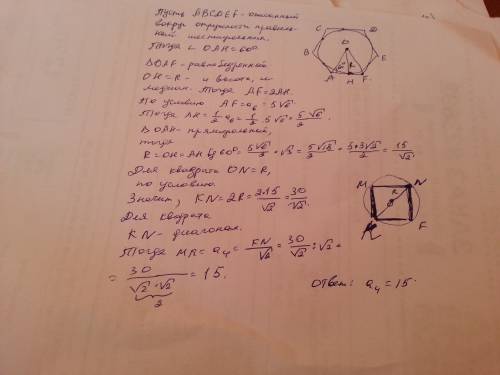 Пусть ABCDEF - описанный
вокруг окружности правиль-
ный шестиугольник.
Тогда ∠ OAH = 60°
ΔOAF - равнобедренный
OH = R - и высота, и
медиан. Тогда AF = 2AH.
По условию AF = a₆ = 5√6.
Тогда AH = 1/2 a₆ = 1/2 · 5√6 = 5√6/2.
В OAH - прямоугольной,
тогда
R = OH = AH tg 60° = 5√6/2 · √3 = 5√18/2 = 5·3√2/2 = 15/√2.
Для квадрата ON = R,
по условию.
Значит, KN = 2R = 2·15/√2 = 30/√2.
Для квадрата
KN - диагональ.
Тогда MK = a₄ = KN/√2 = 30/√2 : √2 =
= 30/(√2 · √2) = 15.
2
Ответ: a₄ = 15.
C
B
O
E
R
A
H
F
M
N
R
F